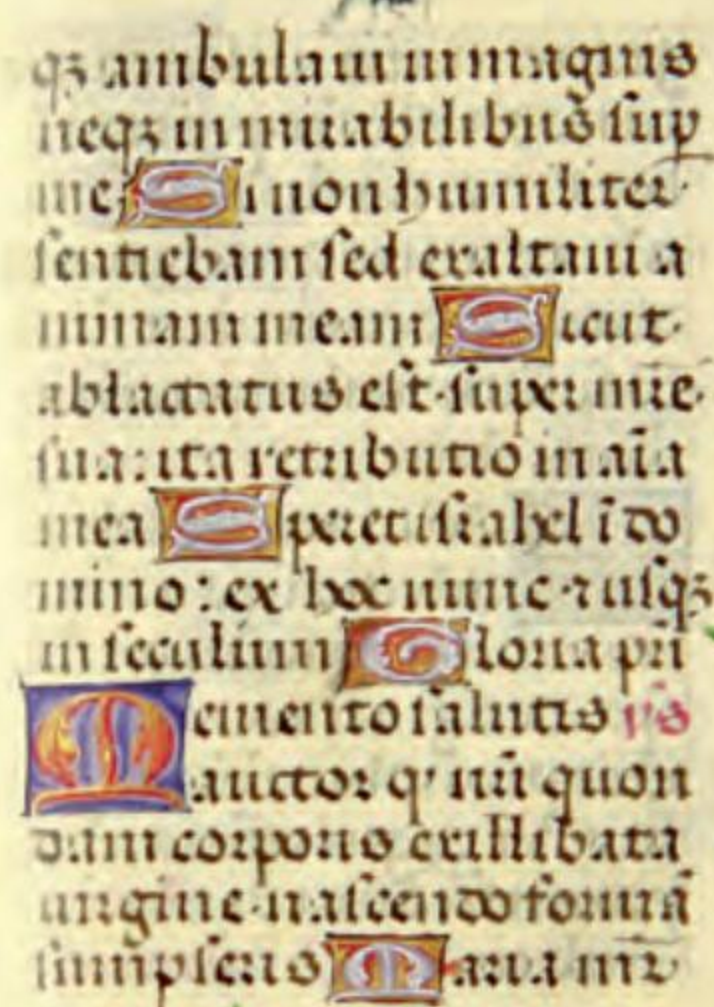 qꝫ ambulaui in magnis
neqꝫ in mirabilibus sup
me Si non humiliter
sentiebam sed exaltaui a
nimam meam Sicut
ablactatus est super mr̄e
sua: ita retributio in aīa
mea Speret israhel ī do
mino: ex hoc nunc ⁊ usqꝫ
in seculum Gloria pr̄i
Memento salutis ym̄s
auctor q' nr̄i quon
dam corporis ex illibata
uirgine nascendo formā
sumpseris Maria mr̄